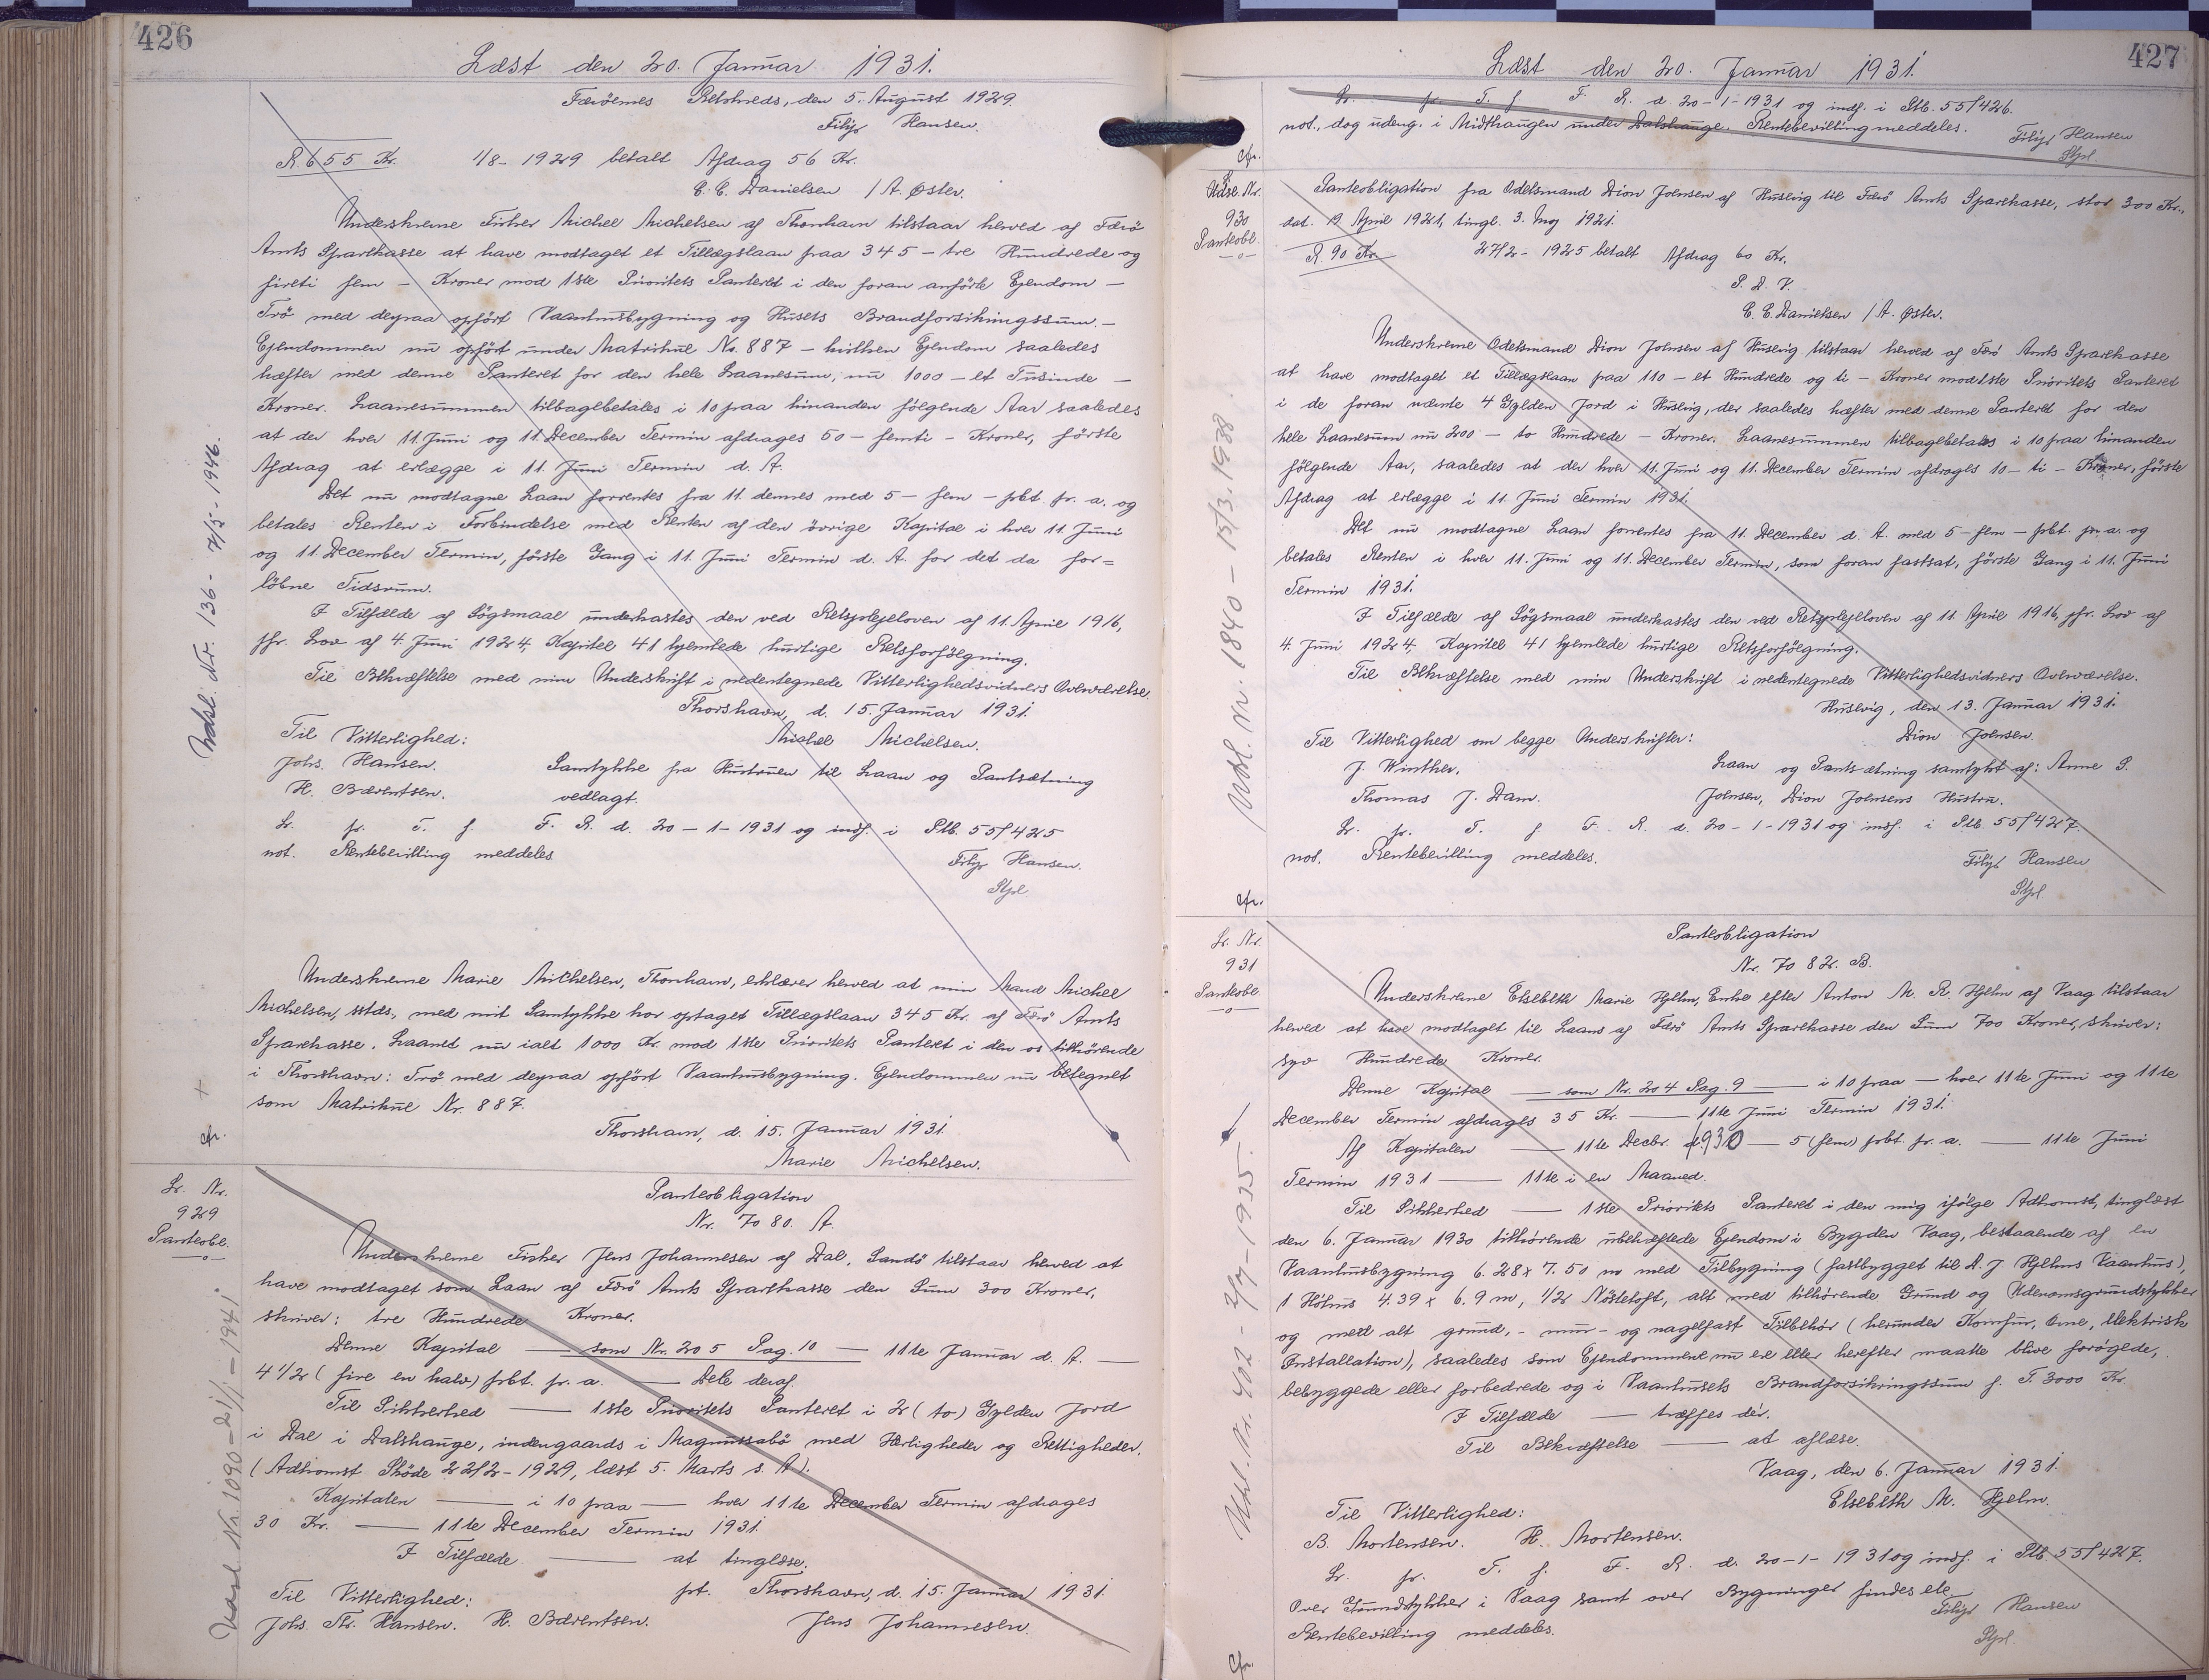 426
Læst den 20. Januar 1931.
Færöernes Retskreds, den 5. August 1929.
Filip Hansen.
R. 655 Kr. 1/8-1929 betalt Afdrag 56 Kr.
C. C. Danielsen / A. Øster.
Underskrevne Fisker Michel Michelsen af Thorshavn tilstaar herved af Færö
Amts Sparekasse at have modtaget et Tillægslaan paa 345 – tre Hundrede og
fireti fem – Kroner mod 1ste Prioritets Panteret i den foran anförte Ejendom –
Trö med derpaa opfört Vaaningsbygning og Husets Brandforsikringssum. –
Ejendommen nu opfört under Matrikul No. 887 – hvilken Ejendom saaledes
hæfter med denne Panteret for den hele Laanesum, nu 1000 – et Tusinde –
Kroner. Laanesummen tilbagebetales i 10 paa hinanden fölgende Aar saaledes
at der hver 11. Juni og 11. December Termin afdrages 50 – femti – Kroner, förste
Afdrag at erlægge i 11. Juni Termin d. A.
Det nu modtagne Laan forrentes fra 11. dennes med 5 – fem – pCt. pr. a. og
betales Renten i Forbindelse med Renten af den övrige Kapital i hver 11. Juni
og 11. December Termin, förste Gang i 11. Juni Termin d. A. for det da for=
löbne Tidsrum.
I Tilfælde af Sögsmaal underkastes den ved Retsplejeloven af 11. April 1916,
jfr. Lov af 4. Juni 1924, Kapitel 41 hjemlede hurtige Retsforfölgning.
Til Bekræftelse med min Underskrift i nedentegnede Vitterlighedsvidners Overværelse.
Thorshavn, d. 15. Januar 1931.
Til Vitterlighed: Michel Michelsen.
Johs. Hansen. Samtykke fra Hustruen til Laan og Pantsætning
H. Bærentsen. vedlagt.
L. pr. T. f. F. R. d. 20-1-1931 og indf. i Ptb. 55/425
not. Rentebevilling meddeles
Filip Hansen.
Stpl.
Udsl. Nr. 136 - 7/5 - 1946.
Underskrevne Marie Michelsen, Thorshavn, erklærer herved at min Mand Michel
Michelsen, sstds., med mit Samtykke har optaget Tillægslaan 345 Kr. af Færö Amts
Sparekasse. Laanet nu ialt 1000 Kr. mod 1ste Prioritets Panteret i den os tilhörende
i Thorshavn: Trö med derpaa opfört Vaaningsbygning. Ejendommen nu betegnet
som Matrikul Nr. 887.
Thorshavn, d. 15. Januar 1931.
Marie Michelsen.
Cfr.
L. Nr.
929
Panteobl.
Panteobligation
Nr. 7080. A.
Underskrevne Fisker Jens Johannesen af Dal, Sandö tilstaar herved at
have modtaget som Laan af Færö Amts Sparekasse den Sum 300 Kroner,
skriver: tre Hundrede Kroner.
Denne Kapital — som Nr. 205 Pag. 10 — 11te Januar d. A. —
4 1/2 (fire en halv) pCt. pr. a. — Dele deraf.
Til Sikkerhed — 1ste Prioritets Panteret i 2 (to) Gylden Jord
i Dal i Dalshauge, indengaards i Magnussabö med Herligheder og Rettigheder.
(Adkomst Sköde 22/2-1929, læst 5. Marts s. A).
Kapitalen — i 10 paa — hver 11te December Termin afdrages
30 Kr. — 11te December Termin 1931.
I Tilfælde — at tinglæse.
Til Vitterlighed: pt. Thorshavn, d. 15. Januar 1931.
Johs. Th. Hansen. H. Bærentsen. Jens Johannesen.
Udsl. Nr. 1090 - 21/1 - 1941.
427
Læst den 20. Januar 1931.
L. pr. T. f. F. R. d. 20-1-1931 og indf. i Ptb. 55/426.
not., dog udeng. i Midthaugen under Dalshauge. Rentebevilling meddeles.
Filip Hansen
Stpl.
Cfr.
Udse. Nr.
930
Panteobl.
Panteobligation fra Odelsmand Dion Joensen af Husevig til Færö Amts Sparekasse, stor 300 Kr.,
dat. 19 April 1921, tingl. 3. Maj 1921.
R. 90 Kr. 27/2-1925 betalt Afdrag 60 Kr.
P. D. V.
C. C. Danielsen / A. Øster.
Underskrevne Odelsmand Dion Joensen af Husevig tilstaar herved af Færö Amts Sparekasse
at have modtaget et Tillægslaan paa 110 – et Hundrede og ti – Kroner mod 1ste Prioritets Panteret
i de foran nævnte 4 Gylden Jord i Husevig, der saaledes hæfter med denne Panteret for den
hele Laanesum nu 200 – to Hundrede – Kroner. Laanesummen tilbagebetales i 10 paa hinanden
fölgende Aar, saaledes at der hver 11. Juni og 11. December Termin afdrages 10 – ti – Kroner, förste
Afdrag at erlægge i 11. Juni Termin 1931.
Det nu modtagne Laan forrentes fra 11. December d. A. med 5 – fem – pCt. pr. a. og
betales Renten i hver 11. Juni og 11. December Termin, som foran fastsat, förste Gang i 11. Juni
Termin 1931.
I Tilfælde af Sögsmaal underkastes den ved Retsplejeloven af 11. April 1916, jfr. Lov af
4. Juni 1924, Kapitel 41 hjemlede hurtige Retsforfölgning.
Til Bekræftelse med min Underskrift i nedentegnede Vitterlighedsvidners Overværelse.
Husevig, den 13. Januar 1931.
Til Vitterlighed om begge Underskrifter: Dion Joensen.
J. Winther. Laan og Pantsætning samtykt af: Anne S.
Thomas J. Dam. Joensen, Dion Joensens Hustru.
L. pr. T. f. F. R. d. 20-1-1931 og indf. i Ptb. 55/427.
not. Rentebevilling meddeles.
Filip Hansen
Stpl
Udsl. Nr. 1840 - 15/3. 1938.
Cfr.
L. Nr.
931
Panteobl.
Panteobligation
Nr. 7082. B.
Underskrevne Elsebeth Marie Hjelm, Enke efter Anton M. R. Hjelm af Vaag tilstaar
herved at have modtaget til Laans af Færö Amts Sparekasse den Sum 700 Kroner, skriver:
syv Hundrede Kroner.
Denne Kapital — som Nr. 204 Pag. 9 — i 10 paa — hver 11te Juni og 11te
December Termin afdrages 35 Kr. — 11te Juni Termin 1931.
Af Kapitalen — 11te Decbr. 1930 — 5 (fem) pCt. pr. a. — 11te Juni
Termin 1931 — 11te i en Maaned.
Til Sikkerhed — 1ste Prioritets Panteret i den mig ifölge Adkomst, tinglæst
den 6. Januar 1930 tilhörende ubehæftede Ejendom i Bygden Vaag, bestaaende af en
Vaaningsbygning 6.28 x 7.50 m med Tilbygning (fastbygget til A. J. Hjelms Vaanhus),
1 Höhus 4.39 x 6.9 m, 1/2 Nöstetoft, alt med tilhörende Grund og Udenomsgrundstykker
og med alt grund-, mur- og nagelfast Tilbehör (herunder Komfur, Ovne, elektrisk
Installation), saaledes som Ejendommene nu ere eller herefter maatte blive forögede,
bebyggede eller forbedrede og i Vaanhusets Brandforsikringssum f. T. 3000 Kr
I Tilfælde — træffes dér.
Til Bekræftelse — at aflæse.
Vaag, den 6. Januar 1931.
Til Vitterlighed: Elsebeth M. Hjelm.
B. Mortensen. H. Mortensen.
L. pr. T. f. F. R. d. 20-1-1931 og indf. i Ptb. 55/427.
Over Grundstykker i Vaag samt over Bygninger findes ete
Rentebevilling meddeles.
Filip Hansen
Stpl.
Udsl. Nr. 402 - 2/7 - 1935.